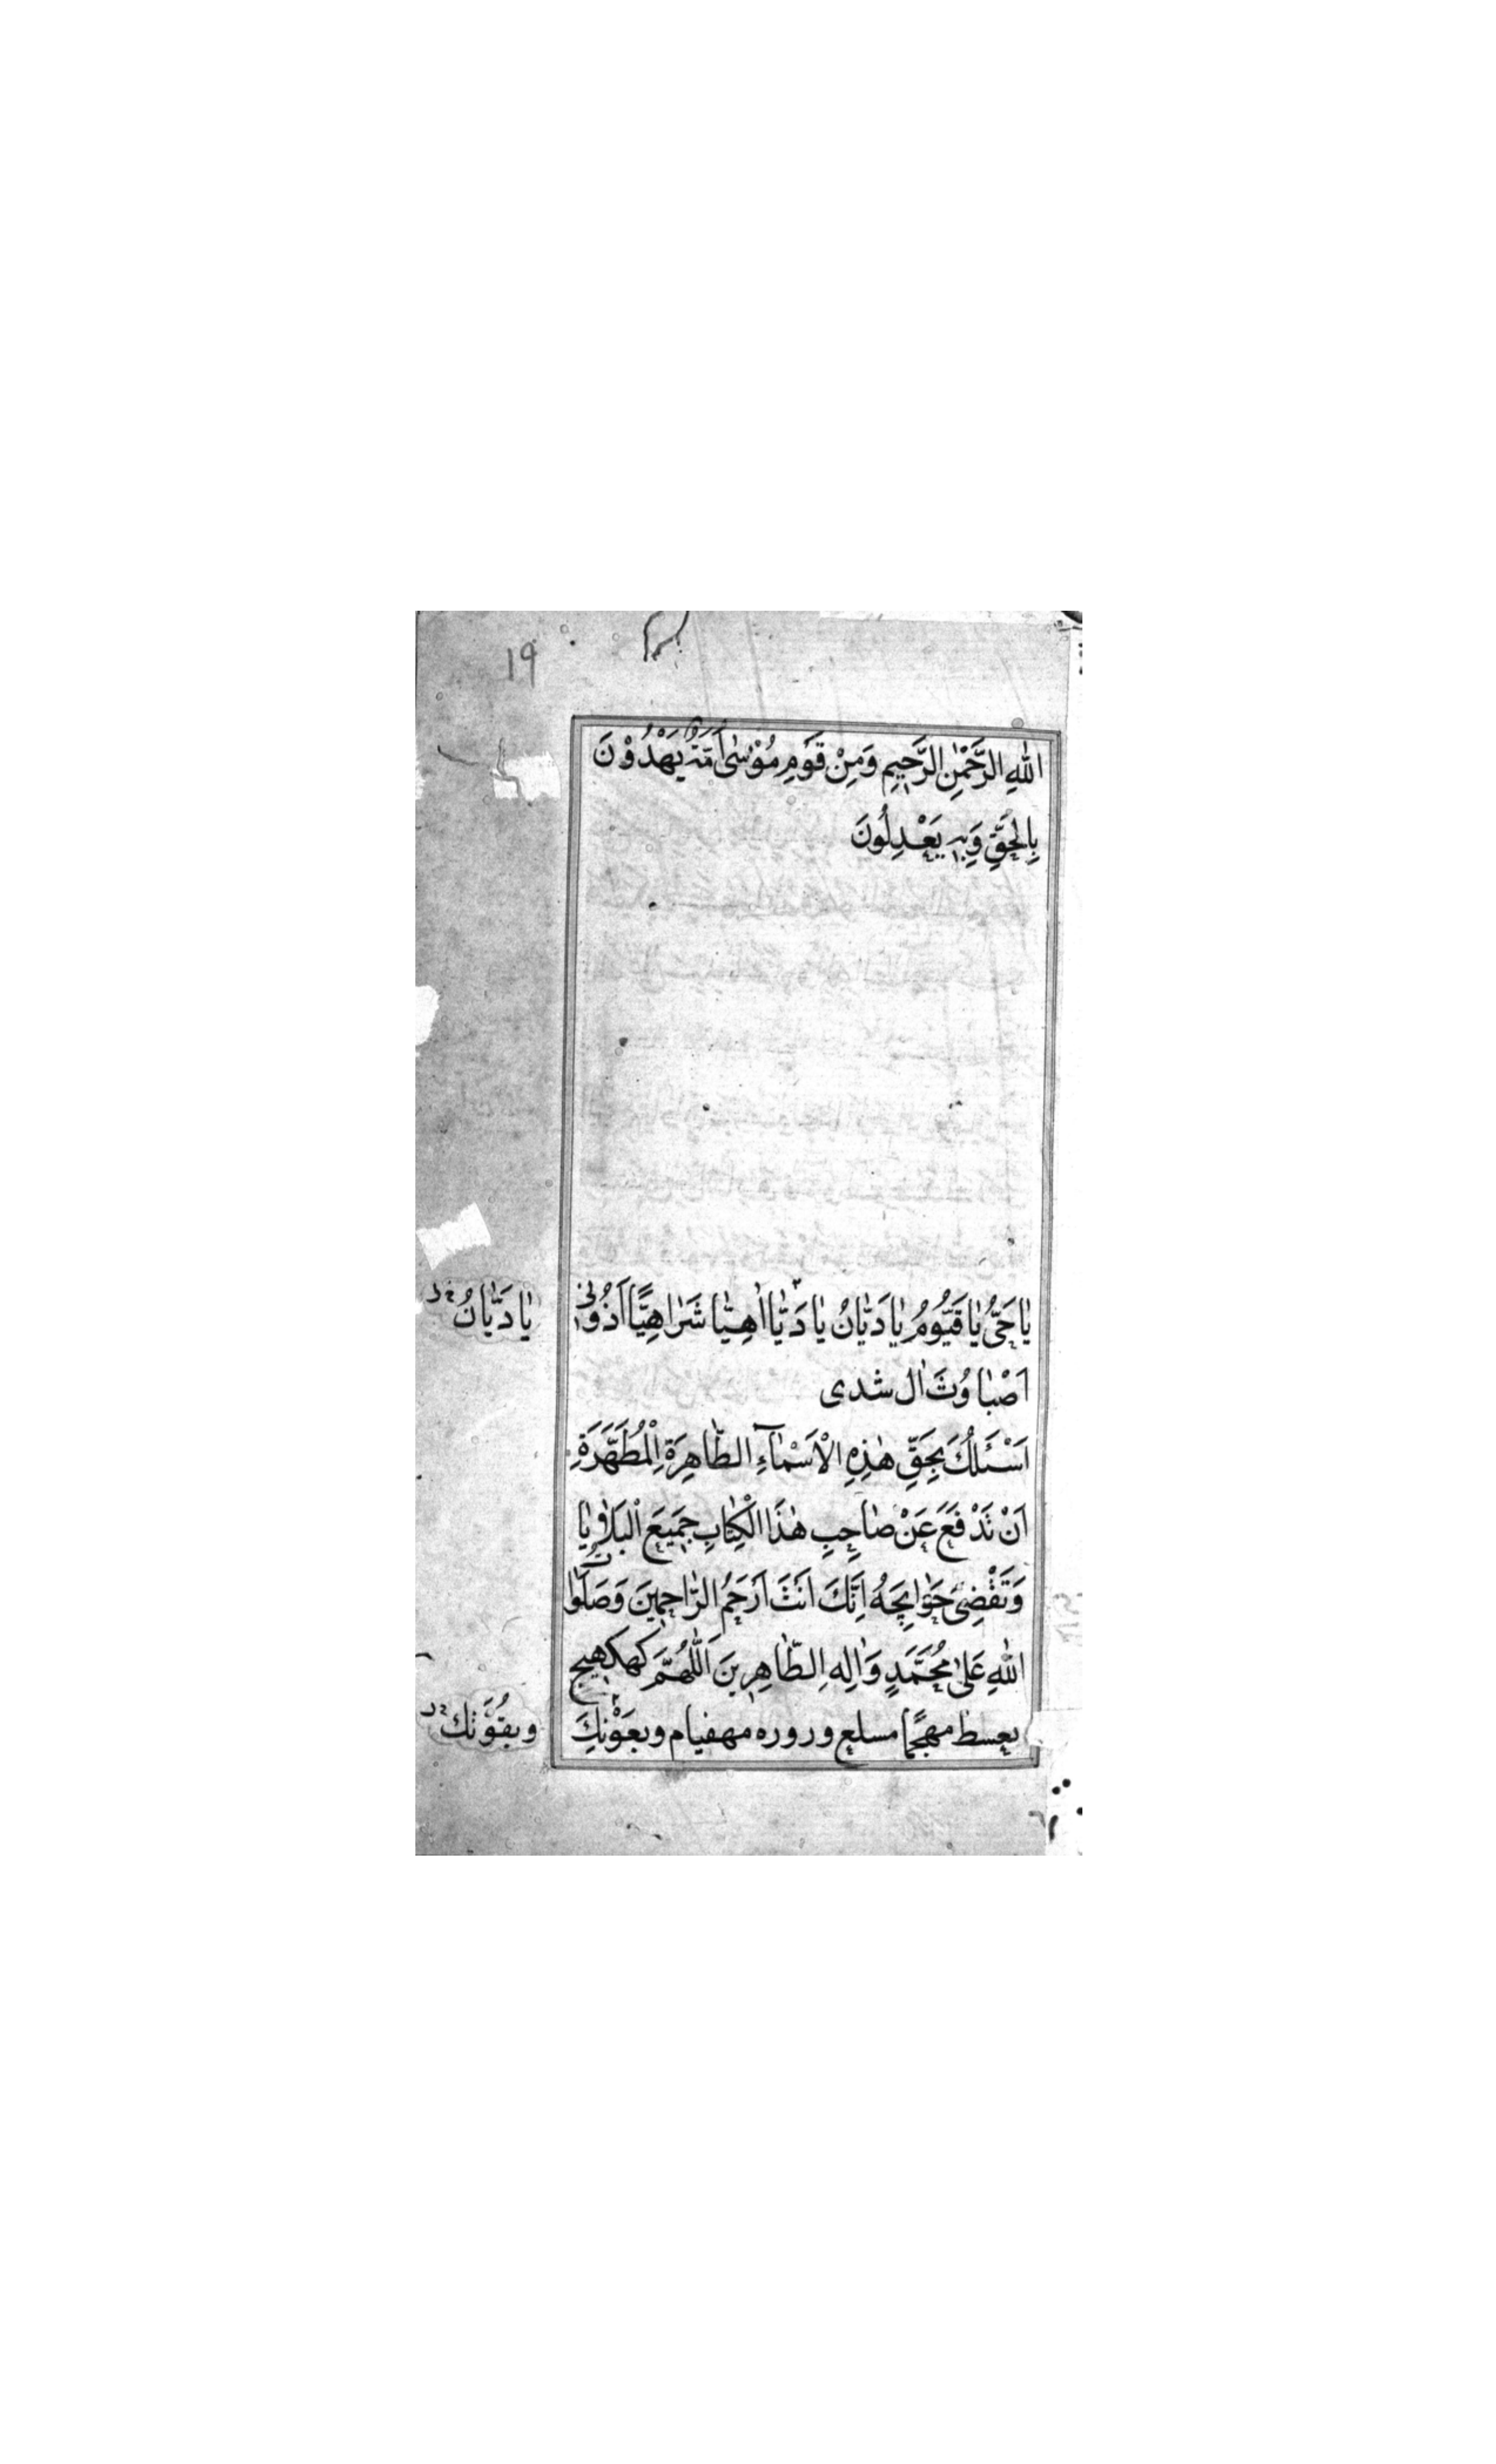 19
اللهِ الرَّحْمٰنِ الرَّحِيمِ وَمِنْ قَوْمِ مُوْسٰى اُمَّةٌ يَهْدُوْنَ
بِالْحَقِّ وَبِهٖ يَعْدِلُونَ
يٰا حَىُّ يٰا قَيُّومُ يٰا دَيّٰانُ يٰا دَيّٰا اٰهِيّٰا شَرٰاهِيًّا اَذُونٰى
يٰا دَيّٰانُ
اَصْبٰاوُثَ اٰل شدى
اَسْئَلُكَ بِحَقِّ هٰذِهِ الْاَسْمٰآءِ الطّٰاهِرَةِ الْمُطَهَّرَةِ
اَنْ تَدْفَعَ عَنْ صٰاحِبِ هٰذَا الْكِتٰابِ جَمِيعَ الْبَلٰايٰا
وَتَقْضِىَ حَوٰايِجَهُ اِنَّكَ اَنْتَ اَرْحَمُ الرّٰاحِمِينَ وَصَلَوٰاتُ
اللهِ عَلىٰ مُحَمَّدٍ وَاٰلِهِ الطّٰاهِرِينَ اَللّٰهُمَّ كهكهيج
بعسط مهجما مسلع وروره مهفيام وبعَوْنِكَ
وبقُوَّتك